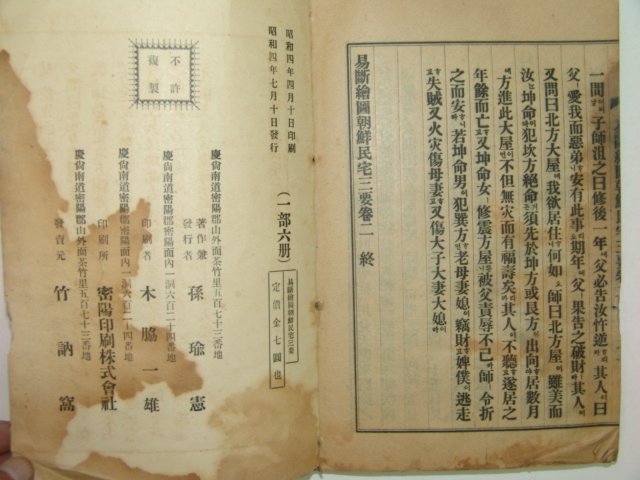 一間 子師沮之曰修後一年 父必告汝忤逆 其人曰
父 愛我而惡弟 安有此事 期年 父 果告之破財 其人
又問曰北方大屋 我欲居住 何如 師曰北方屋 雖美而
汝 坤命 犯坎方絕命 須先於坤方或艮方 出向 居數月
方進此大屋 不但無灾而有福壽矣 其人 不聽 遂居之
年餘而亡 又坤命女 修震方屋 被父責辱不已 師 令折
之而安 若坤命男 犯巽方 老母妻媳 竊財 婢僕 逃走
失賊 又火灾傷母妻 又傷大子大妻大媳
易斷繪圖朝鮮民宅三要卷二 終
不許
複製
昭和四年四月十日印刷
昭和四年七月十日發行
(一部六册)
易斷繪圖朝鮮民宅三要
定價金七圓也
慶尙南道密陽郡山外面茶竹里五百七十三番地
著作兼
發行者 孫瑜憲
慶尙南道密陽郡密陽面內一洞六百二十四番地
印刷者 木脇一雄
慶尙南道密陽郡密陽面內一洞六百二十四番地
印刷所 密陽印刷株式會社
慶尙南道密陽郡山外面茶竹里五百七十三番地
發賣元 竹訥窩